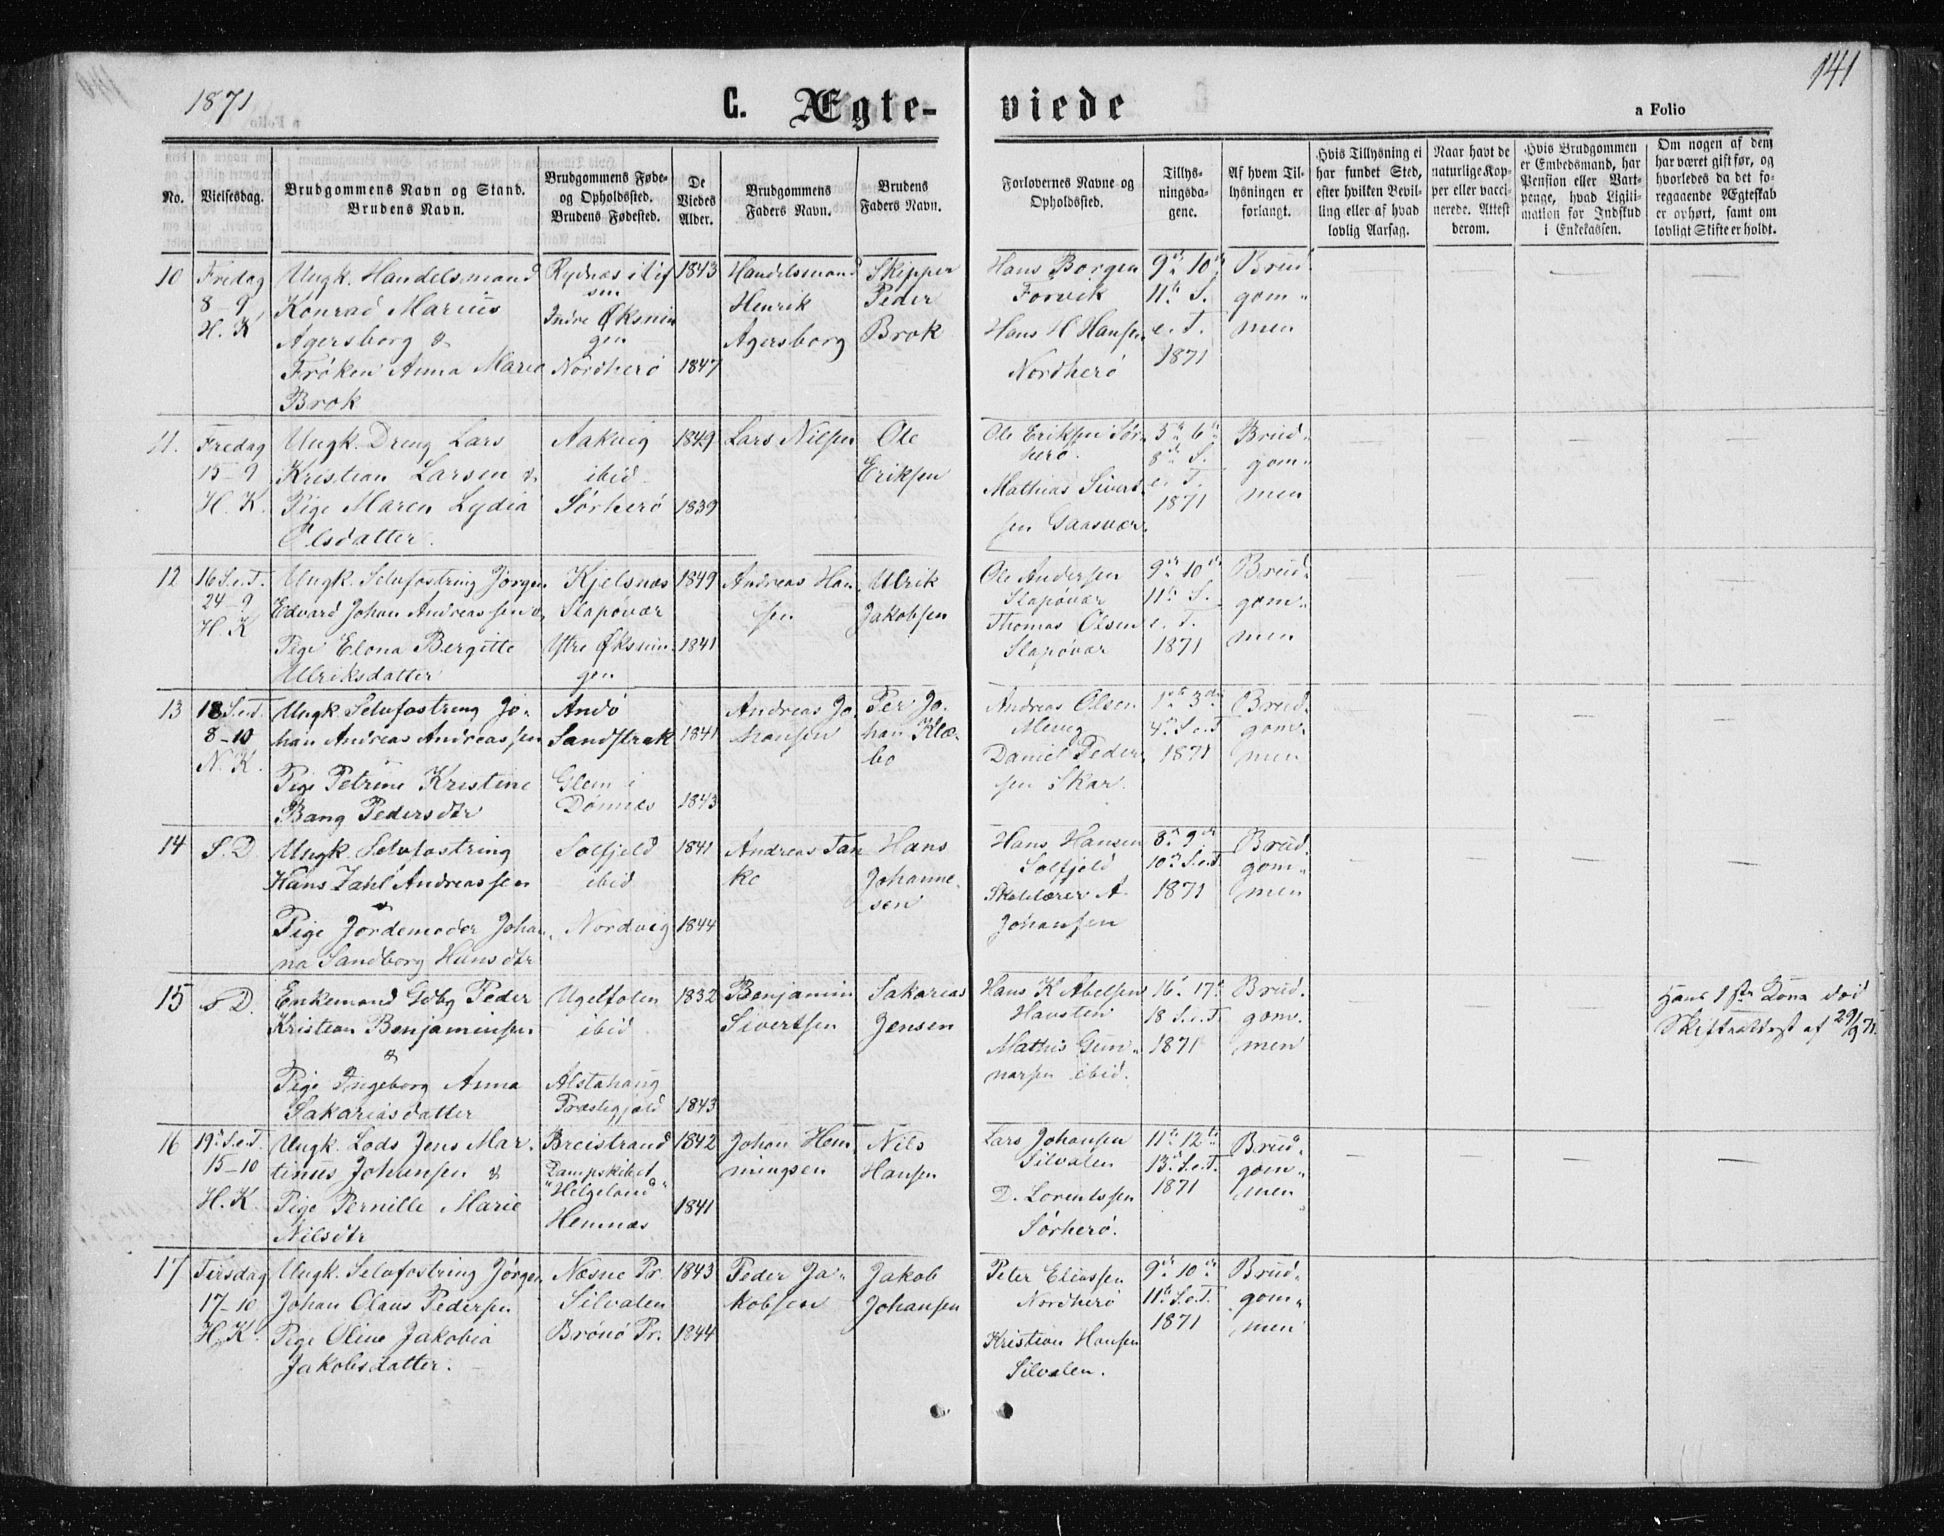 1871
C. Ægte-
viede
141
a Folio
No.
Vielsesdag.
Brudgommens Navn og Stand.
Brudens Navn.
Brudgommens Føde-
og Opholdssted.
Brudens Fødested.
De
Viedes
Alder.
Brudgommens
Faders Navn.
Brudens
Faders Navn.
Forlovernes Navne og
Opholdssted.
Tillys-
ningsda-
gene.
Af hvem Til-
lysningen er
forlangt.
Hvis Tillysning ei
har fundet Sted,
efter hvilken Bevil-
ling eller af hvad
lovlig Aarsag.
Naar havt de
naturlige Kop-
per eller vacci-
nerede. Attest
derom.
Hvis Brudgommen
er Embedsmand, har
Pension eller Vart-
penge, hvad Ligiti-
mation for Indskud
i Enkekassen.
Om nogen af dem
har været gift før, og
hvorledes da det fo-
regaaende Ægteskab
er ophørt, samt om
lovligt Skifte er holdt.
10
Fredag
8-9
H. K
Ungk. Handelsmand
Konrad Marius
Agersborg &
Frøken Anna Marie
Brok
Rydnæs i
Indre Øksnin
gen
Nordherø
1843
1847
Handelsmand
Henrik
Agersborg
Skipper
Peder
Brok
Hans Borgen
Forvik
Hans H Hansen
Nordherø
9de 10de
11te S.
e. T.
1871
Brud-
gom-
men
11.
Fredag
15-9
H. K.
Ungk. Dreng Lars
Kristian Larsen &
Pige Maren Lydia
Olsdatter.
Aakvig
ibid
Sørherø
1849
1839
Lars Nilsen
Ole
Eriksen
Ole Eriksen Sør-
herø.
Mathias Sivert-
sen Gaasvær.
5te 6te
8de S.
e. T.
1871
Brud-
gom-
men
12
16 S.e.T.
24-9
H. K
Ungk. Selvfostring Jørgen
Edvard Johan Andreassen &
Pige Elona Bergitte
Ulriksdatter
Kjelsnæs
Slapøvær
Ytre Øksnin-
gen
1849
1841
Andreas Han
sen
Ulrik
Jakobsen
Ole Andersen
Slapøvær
Thomas Olsen
Slapøvær
9de 10de
11te S.
e. T.
1871
Brud-
gom-
men
13
18 S.e.T.
8-10
N. K.
Ungk. Selvfostring Jo-
han Andreas Andreassen
Pige Petrine Kristine
Bang Pedersdtr
Andø
Sandstrak
Glem i
Dønnes
1841
1843
Andreas Jo-
hansen
Per Jo-
han Klæ-
bo
Andreas Olsen
Meug
Daniel Peder-
sen Skar.
1ste 3die
4de S.e.T
1871
Brud-
gom-
men
14
S. D.
Ungk. Selvfostring
Hans Zahl Andreassen
&
Pige Jordemoder Johan-
na Sandborg Hansdtr
Solfjeld
ibid
Nordvig
1841
1844
Andreas Tan
ke
Hans
Johanne-
sen
Hans Hansen
Solfjeld
Skolelærer A.
Johansen
8de 9de
10de S.e.T.
1871
Brud-
gom-
men
15
s D.
Enkemand Gdbg Peder
Kristian Benjaminsen
&
Pige Ingeborg Anna
Sakariasdatter
Ugeltoten
ibid
Alstahaug
Præstegjæld
1832
1843
Benjamin
Sivertsen
Sakarias
Jensen
Hans K Abelsen
Havsten
Mathis Gun-
narsen ibid.
16de 17de
18 S.e.T.
1871
Brud-
gom-
men
Hans 1ste Kona død
Skifteattest af 29/9 71.
16
19de S.e.T.
15-10
H. K.
Ungk. Lods Jens Mar-
tinus Johansen &
Pige Pernille Marie
Nilsdtr
Breistrand
Dampskibet
"Helgeland"
Hemnæs
1842
1841
Johan Hem
mingsen
Nils
Hansen
Lars Johansen
Silvalen
D. Lorentssen
Sørherø.
11te 12te
13de S.e.T.
1871
Brud-
gom-
men
17
Tirsdag
17-10
H. K.
Ungk. Selvfostring Jørgen
Johan Olaus Pedersen
Pige Oline Jakobia
Jakobsdatter.
Næsne Pr.
Silvalen
Brønø Pr.
1843
1844
Peder Ja-
kobsen
Jakob
Johansen
Peter Eliassen
Nordherø
Kristian Hansen
Silvalen.
9de 10de
11te S.e.T.
1871
Brud-
gom-
men